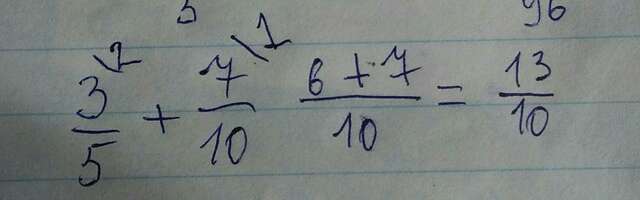 5 96
3/5 ² + 7/10 ¹ (6 + 7)/10 = 13/10